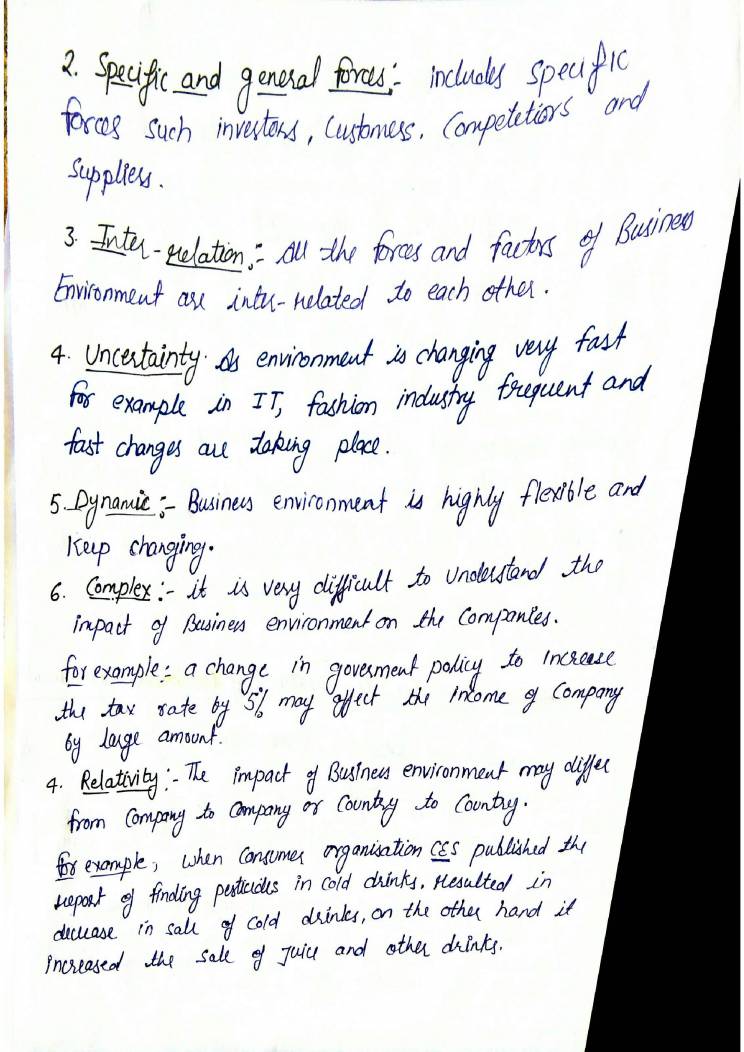 2. Specific and general forces:- includes specific
forces such investors, Customers, Competetiors and
Suppliers.
3. Inter-relation:- All the forces and factors of Business
Environment are inter-related to each other.
4. Uncertainty. As environment is changing very fast
for example in IT, fashion industry frequent and
fast changes are taking place.
5. Dynamic:- Business environment is highly flexible and
Keep changing.
6. Complex:- it is very difficult to understand the
impact of Business environment on the Companies.
for example:- a change in goverment policy to increase
the tax rate by 5% may affect the income of Company
by large amount.
4. Relativity:- The impact of Business environment may differ
from Company to Company or Country to Country.
for example, when Consumer organisation CES published the
report of finding pesticides in cold drinks. Resulted in
decrease in sale of cold drinks, on the other hand it
increased the sale of Juice and other drinks.